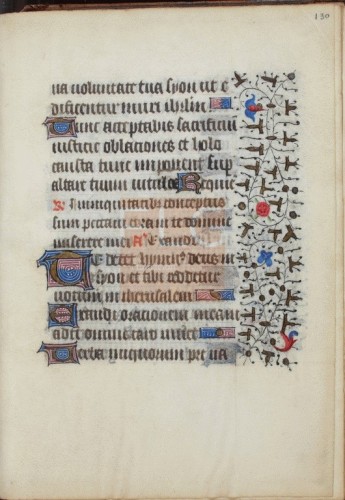 130
ua uoluntate tua syon ut e
dificentur muri ihrlm
Tunc acceptabis sacrificiū
iusticie oblationes et holo
causta tunc imponent sup
altare tuum uitulos Requiē
In iniquitatibus conceptus
sum domine
miserere mei A Exaudi
Te decet hymnus deus in
syon et tibi reddetur
uotum in iherusalem
Exaudi orationem meam
ad te omnis caro ueniet
Uerba iniquorum preua